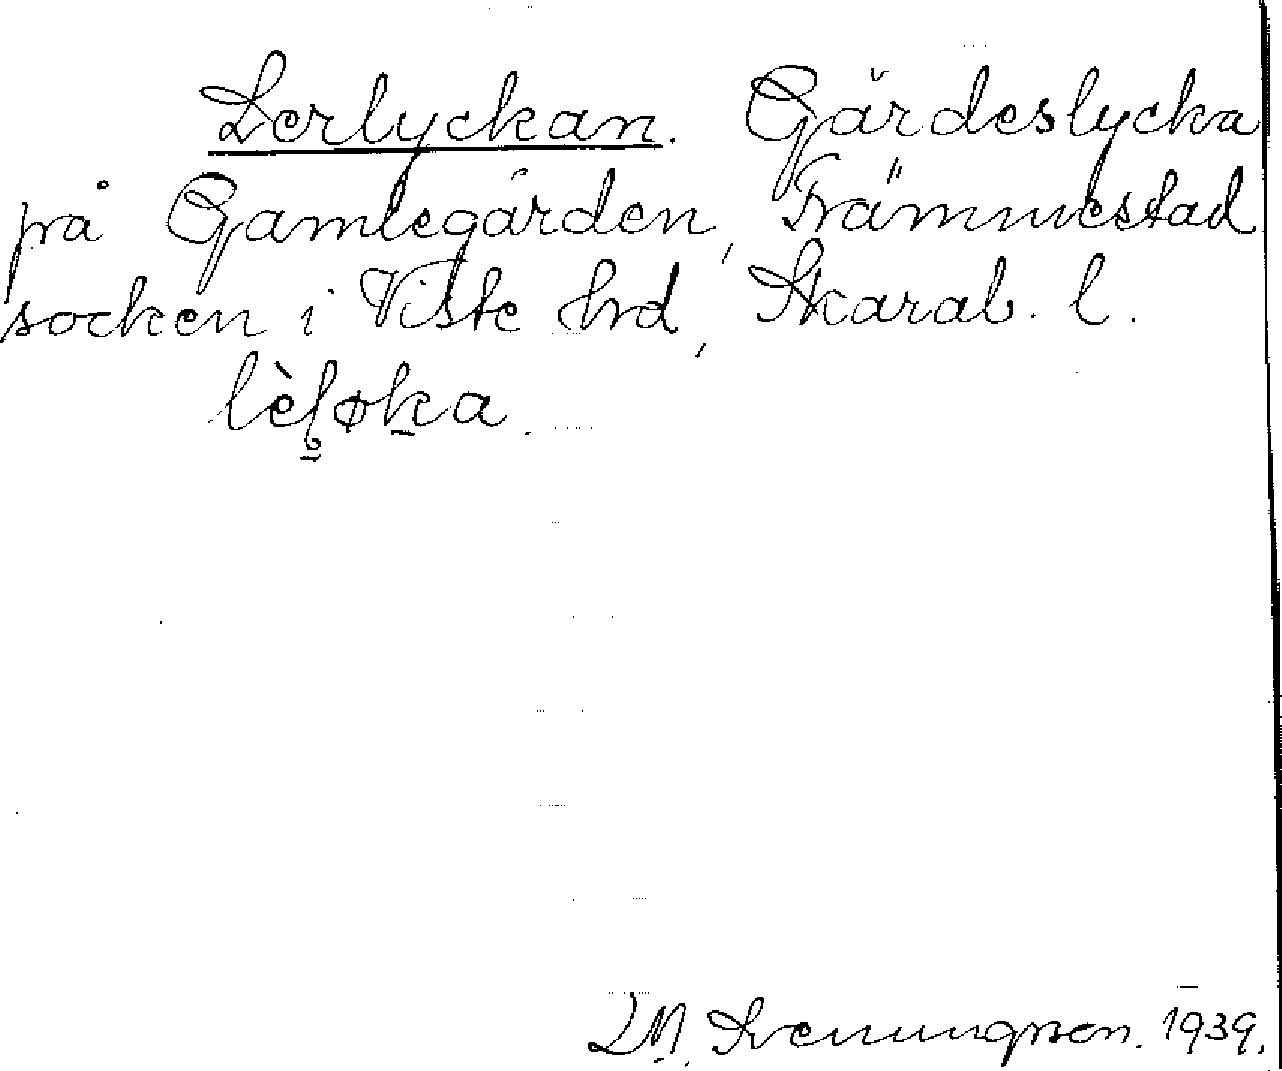 Lerlyckan. Gärdeslycka
på Gamlegården, Främmestad
socken i Viste hrd, Skarab. l.
lèløka.
D.N. Svenungsson. 1939.